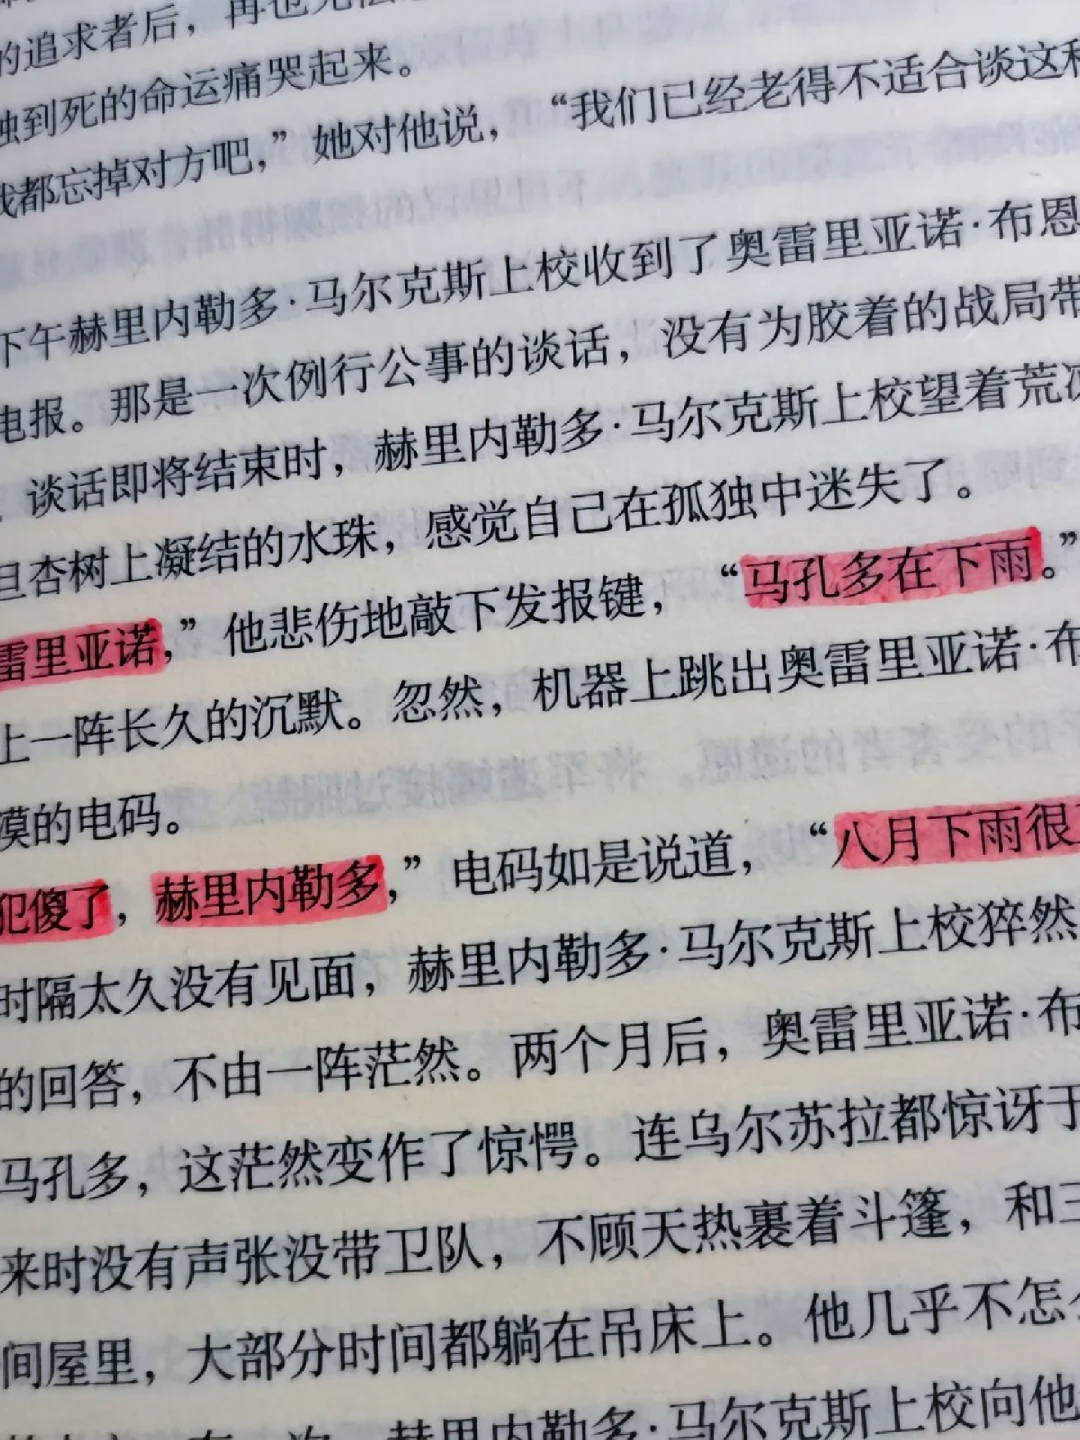 的追求者后，再也无法
独到死的命运痛哭起来。
我都忘掉对方吧，”她对他说，“我们已经老得不适合谈这种
下午赫里内勒多·马尔克斯上校收到了奥雷里亚诺·布恩
电报。那是一次例行公事的谈话，没有为胶着的战局带
谈话即将结束时，赫里内勒多·马尔克斯上校望着荒凉
旦杏树上凝结的水珠，感觉自己在孤独中迷失了。
雷里亚诺，”他悲伤地敲下发报键，“马孔多在下雨。”
上一阵长久的沉默。忽然，机器上跳出奥雷里亚诺·布
漠的电码。
犯傻了，赫里内勒多，”电码如是说道，“八月下雨很正
时隔太久没有见面，赫里内勒多·马尔克斯上校猝然
的回答，不由一阵茫然。两个月后，奥雷里亚诺·布
马孔多，这茫然变作了惊愕。连乌尔苏拉都惊讶于
来时没有声张没带卫队，不顾天热裹着斗篷，和三
间屋里，大部分时间都躺在吊床上。他几乎不怎么
有一次，赫里内勒多·马尔克斯上校向他